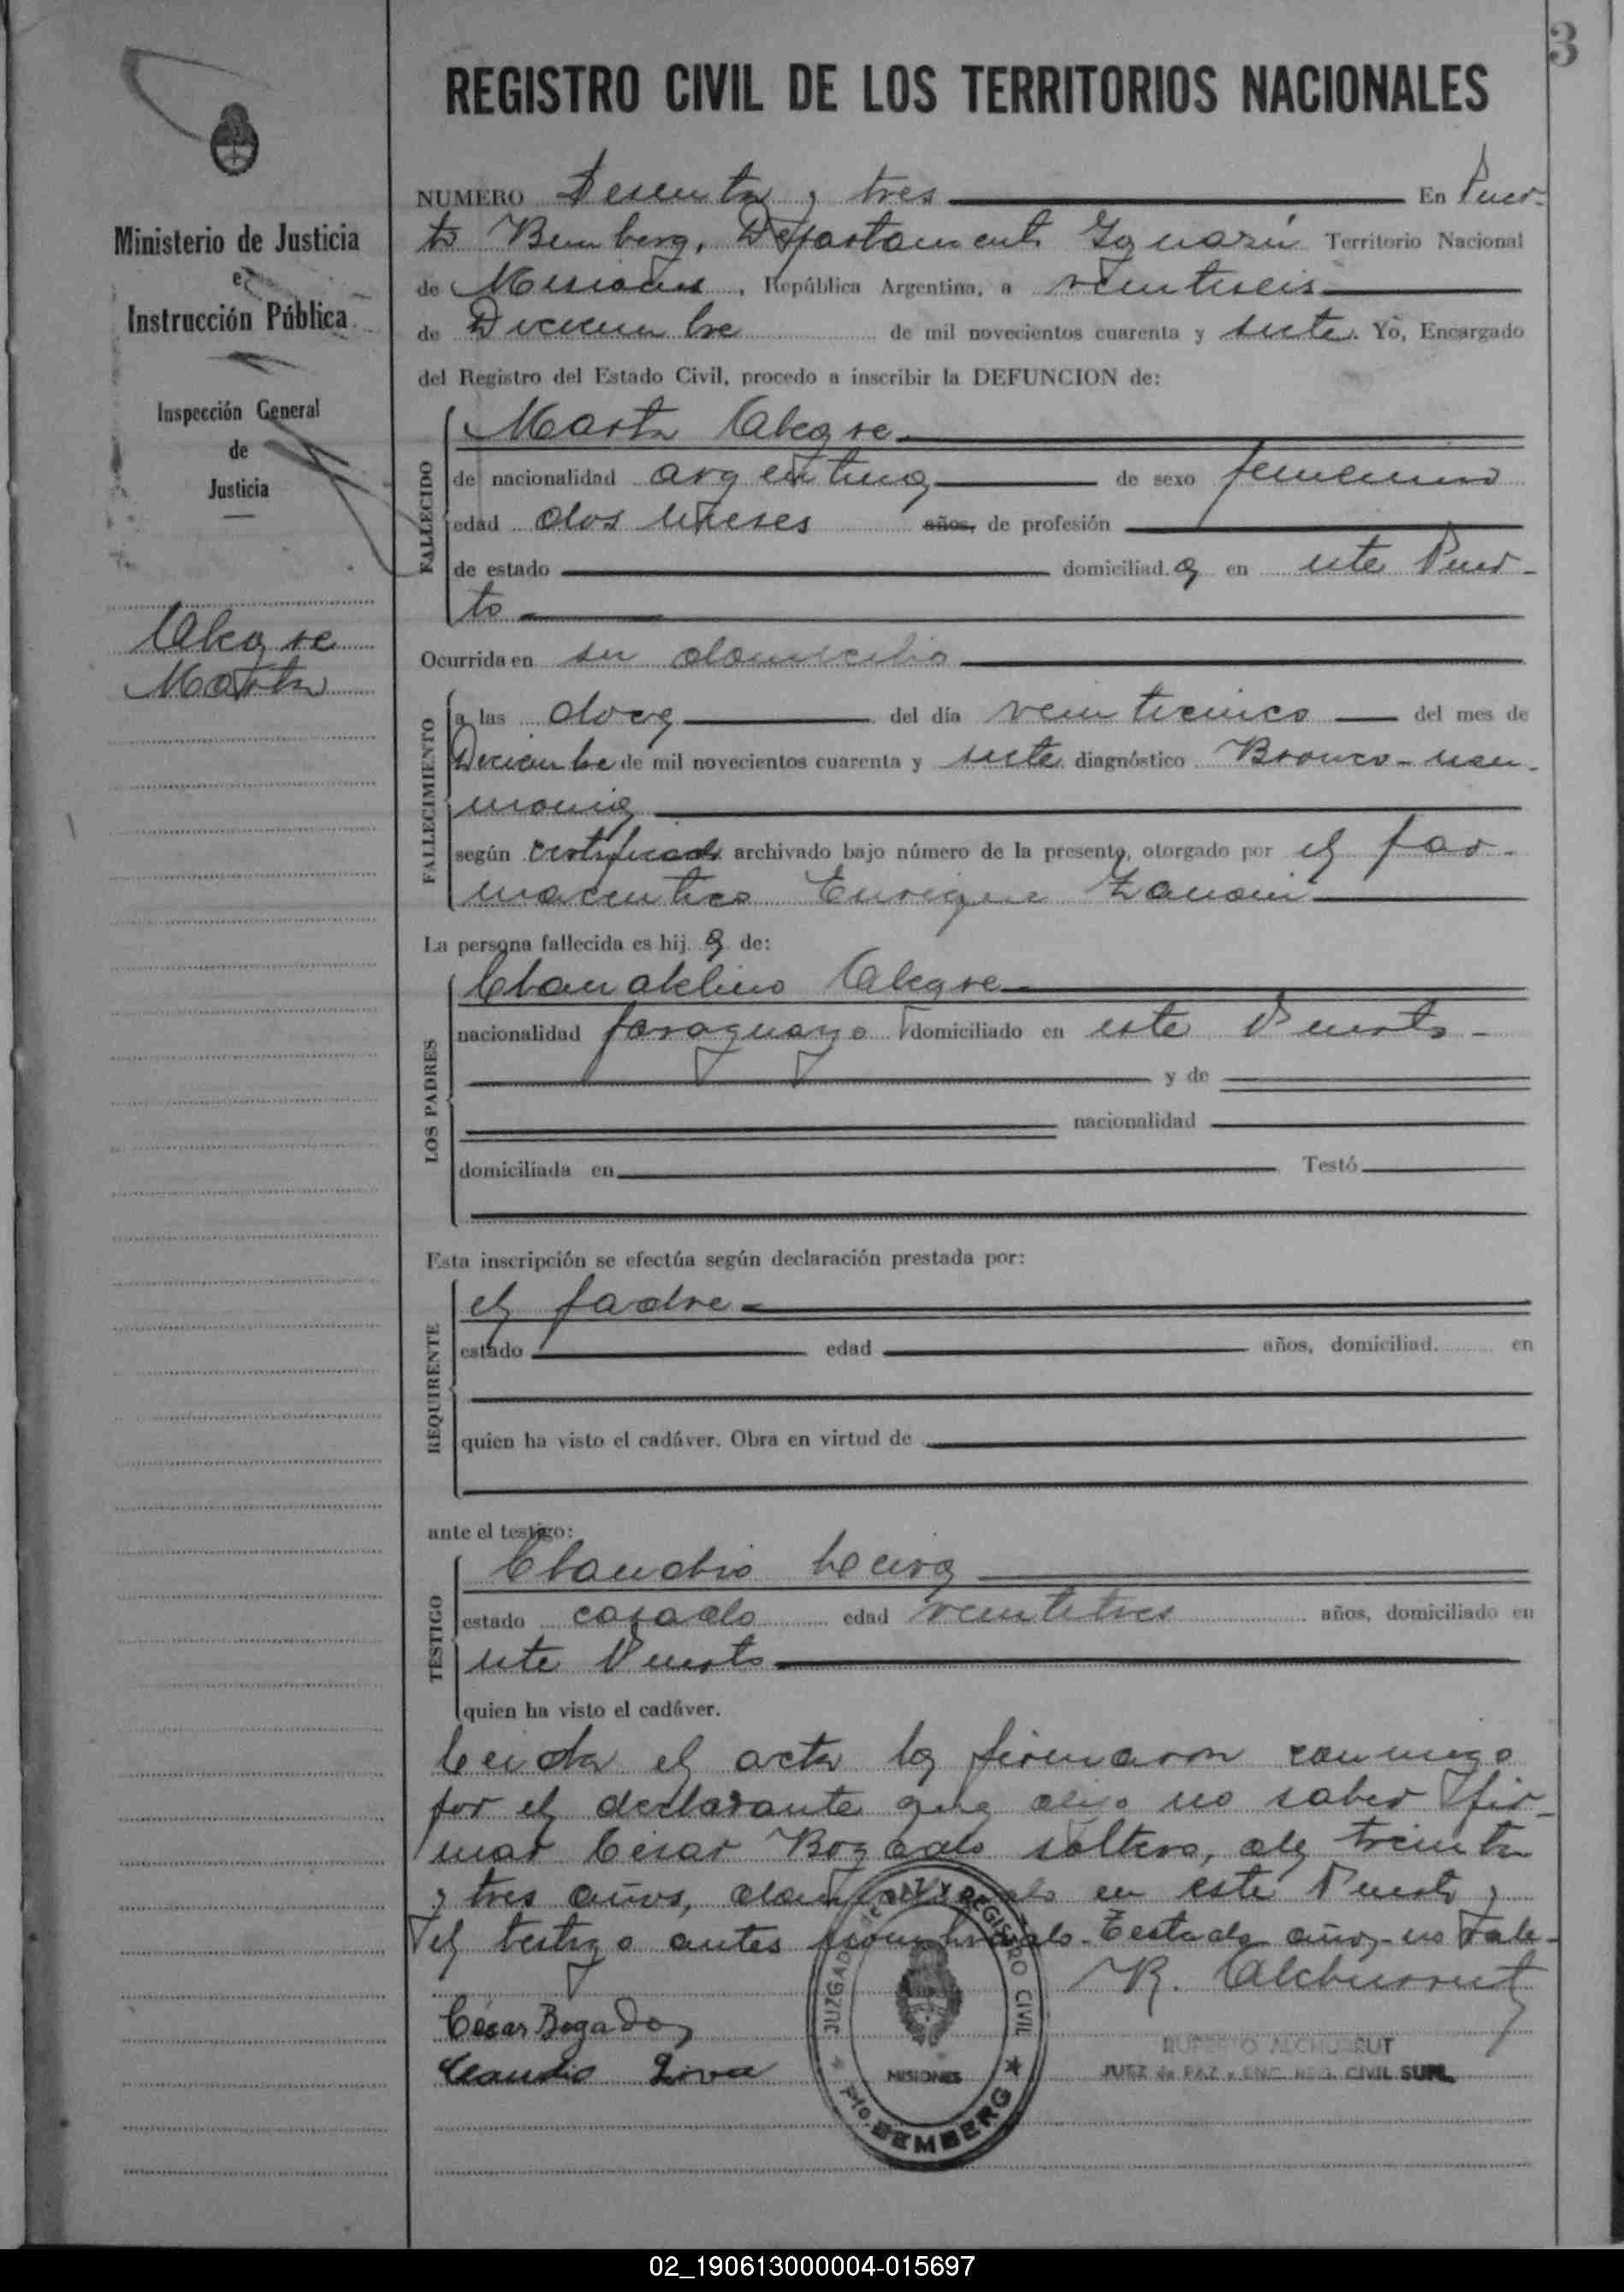 3
REGISTRO CIVIL DE LOS TERRITORIOS NACIONALES
Ministerio de Justicia
e
Instrucción Pública
Inspección General
de
Justicia
Alegre
Marta
NUMERO Sesenta y tres En Puer-
to Bemberg, Departamento Iguazú Territorio Nacional
de Misiones, República Argentina, a veintiseis
de Diciembre de mil novecientos cuarenta y siete. Yo, Encargado
del Registro del Estado Civil, procedo a inscribir la DEFUNCION de:
FALLECIDO
Marta Alegre
de nacionalidad argentina de sexo femenino
edad dos meses años, de profesión
de estado domiciliad a en este Puer-
to
Ocurrida en su domicilio
FALLECIMIENTO
a las doce del día veinticinco del mes de
Diciembre de mil novecientos cuarenta y siete diagnóstico Bronco-neu-
monia
según certificado archivado bajo número de la presente, otorgado por el far-
maceutico Enrique
La persona fallecida es hij a de:
LOS PADRES
Claudelino Alegre
nacionalidad paraguayo domiciliado en este Puerto -
y de
nacionalidad
domiciliada en Testó
Esta inscripción se efectúa según declaración prestada por:
REQUIRENTE
el padre
estado edad años, domiciliad. en
quien ha visto el cadáver. Obra en virtud de
ante el testigo:
TESTIGO
Claudio Leiva
estado casado edad veintitres años, domiciliado en
este Puerto
quien ha visto el cadáver.
Leida el acta la firmaron conmigo
por el declarante que dijo no saber fir-
mar César Bogado soltero, de treinta
y tres años, domiciliado en este Puerto y
el testigo antes nombrado - Testado años, - no vale -
R. Alchurrut
César Bogado
Claudio
JUZGADO DE PAZ Y REGISTRO CIVIL
MISIONES
Pto. BEMBERG
RUPERTO ALCHURRUT
JUEZ de PAZ y ENC. REG. CIVIL SUPL.
02_190613000004-015697